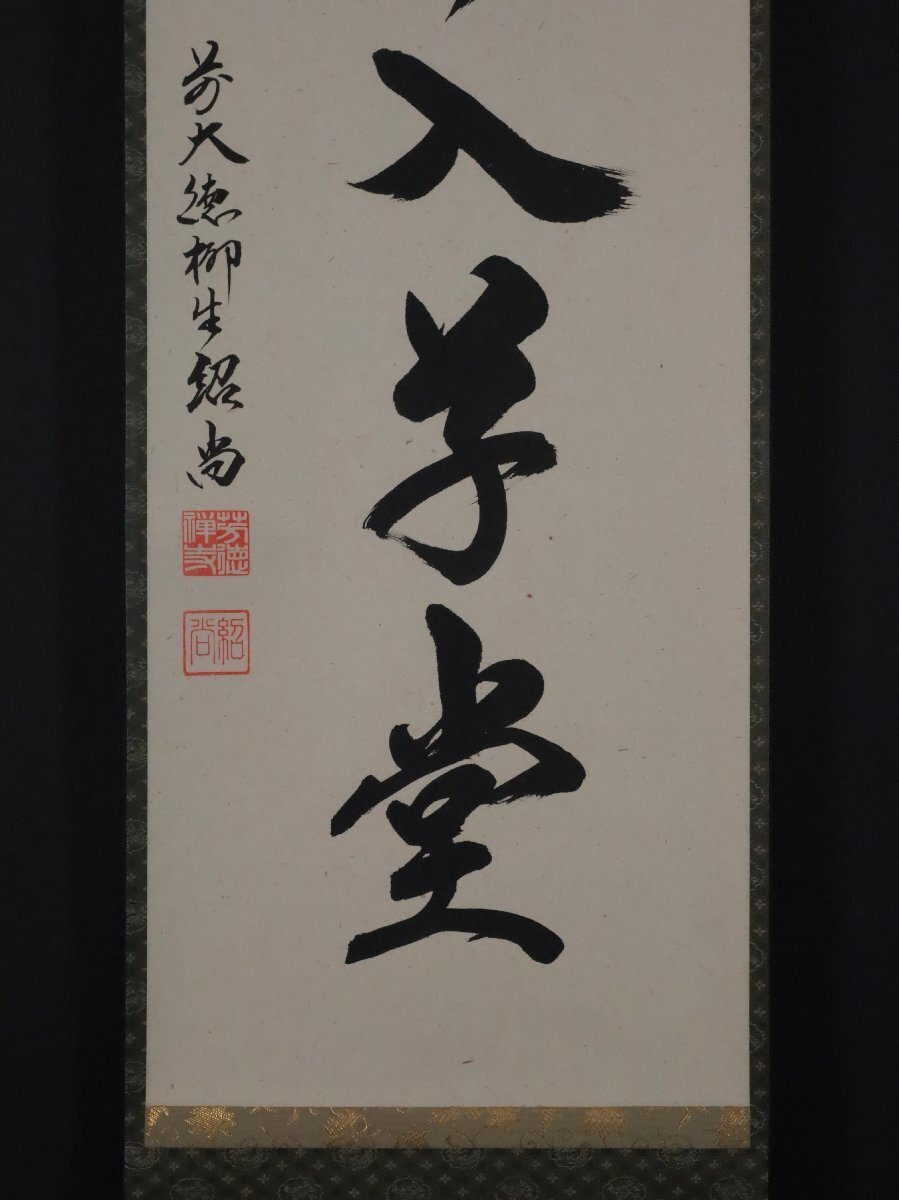 入草堂
前大徳柳生紹尚
芳徳禅寺
紹尚